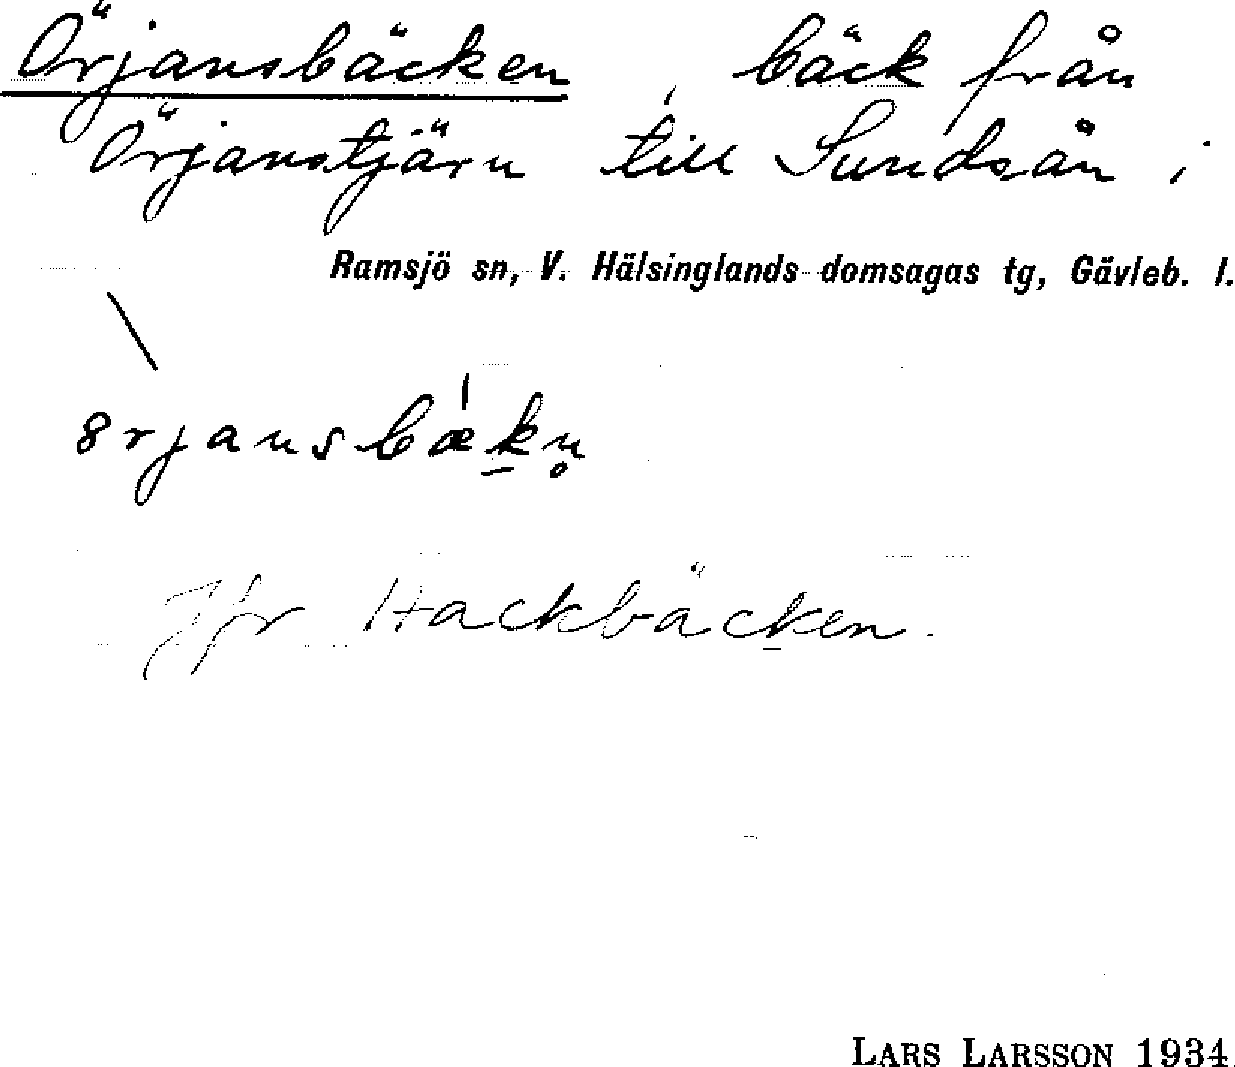 Örjansbäcken, bäck från
Örjanstjärn till Sundsån i
Ramsjö sn, V. Hälsinglands domsagas tg, Gävleb. l.
8rjansbækn̥
Jfr Hackbäcken.
LARS LARSSON 1934.